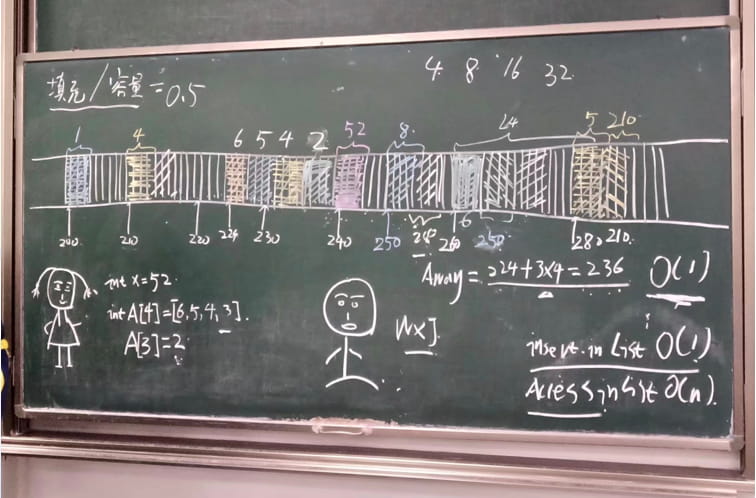 填充/容量=0.5
4 8 16 32
1 4 6 5 4 2 52 8 24 5 210
200 210 220 224 230 240 250 260 280 210
6
int x=52
int A[4]=[6,5,4,3].
A[3]=2
Array=224+3x4=236 O(1)
insert in List O(1)
Access in List O(n).